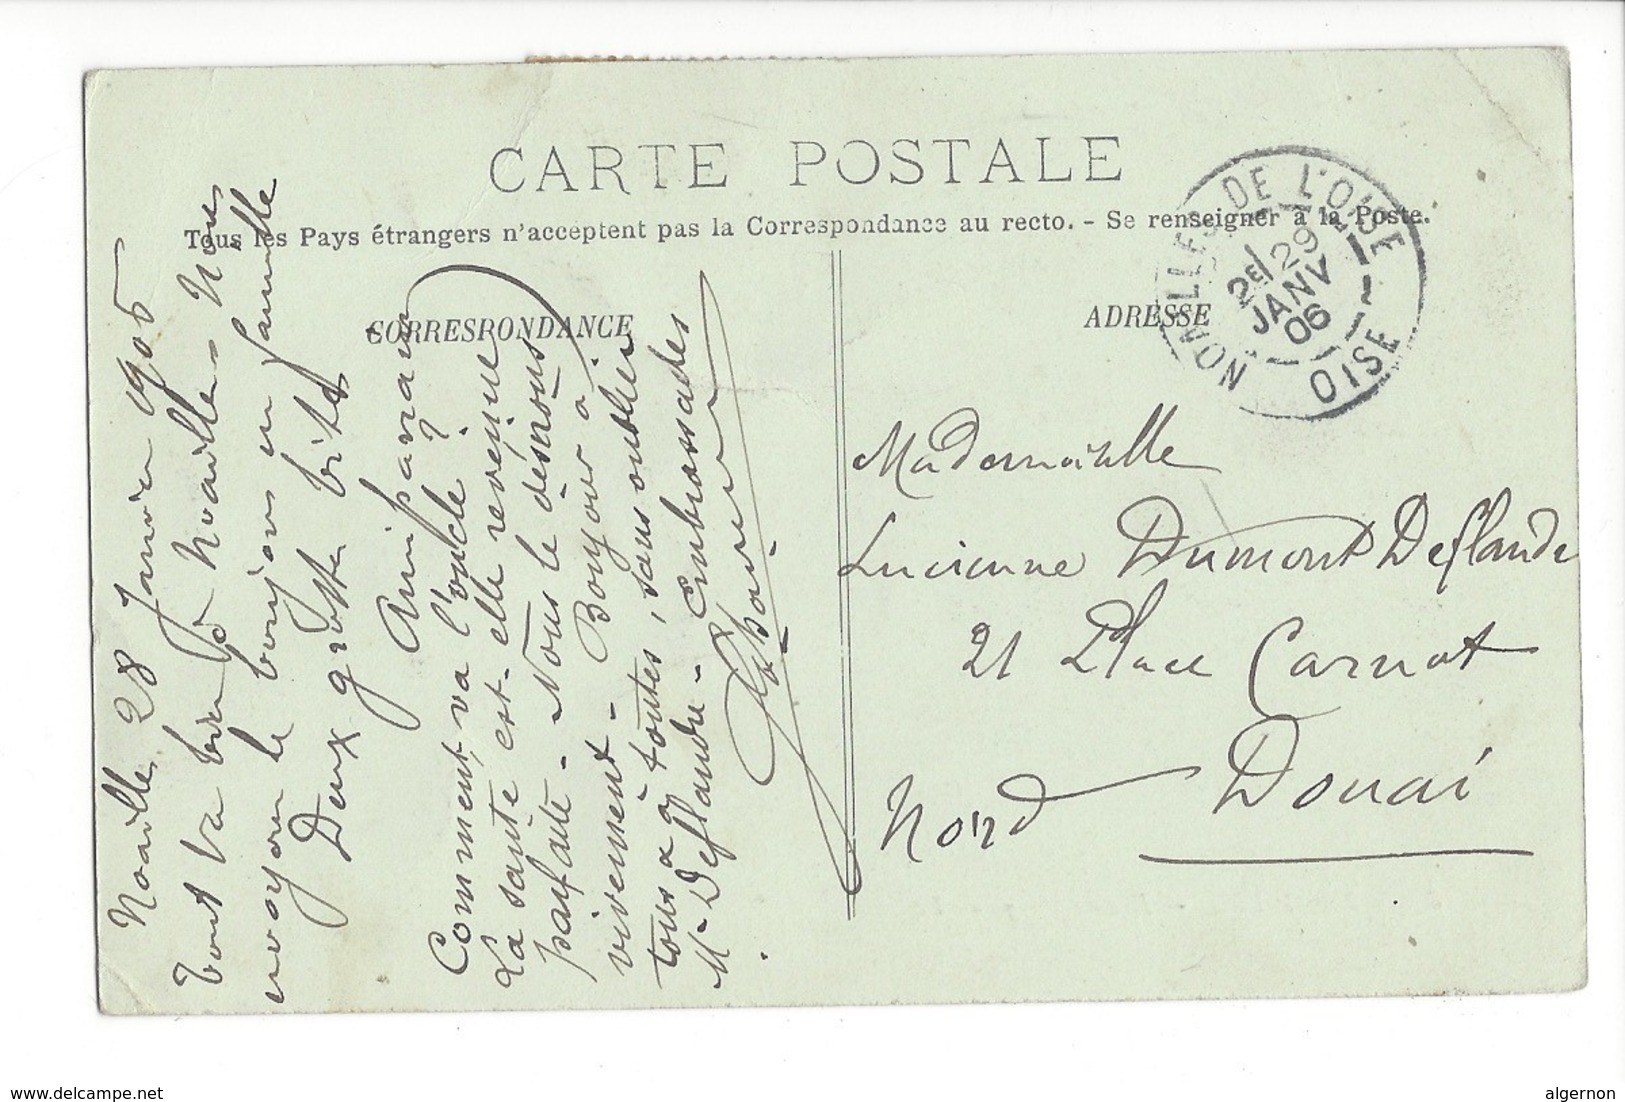 CARTE POSTALE
Tous les Pays étrangers n'acceptent pas la Correspondance au recto. - Se renseigner à la Poste.
CORRESPONDANCE
ADRESSE
NOAILLES DE L'OISE
2E/ 29
JANV
06
OISE
Noailles 28 Janvier 906
Tout va bien à Noailles. Nous
envoyons le bonjour en famille
Deux grosses bises
Ami parrain
Comment va l'oncle ?
La santé est-elle revenue
parfaite. Nous le désirons
vivement. Bonjour à
tous & toutes, sans oublier
Mr Deflandre. Embrassades
Mademoiselle
Lucienne Dumont Deflandre
21 Place Carnot
Douai
Nord
www.delcampe.net
algernon